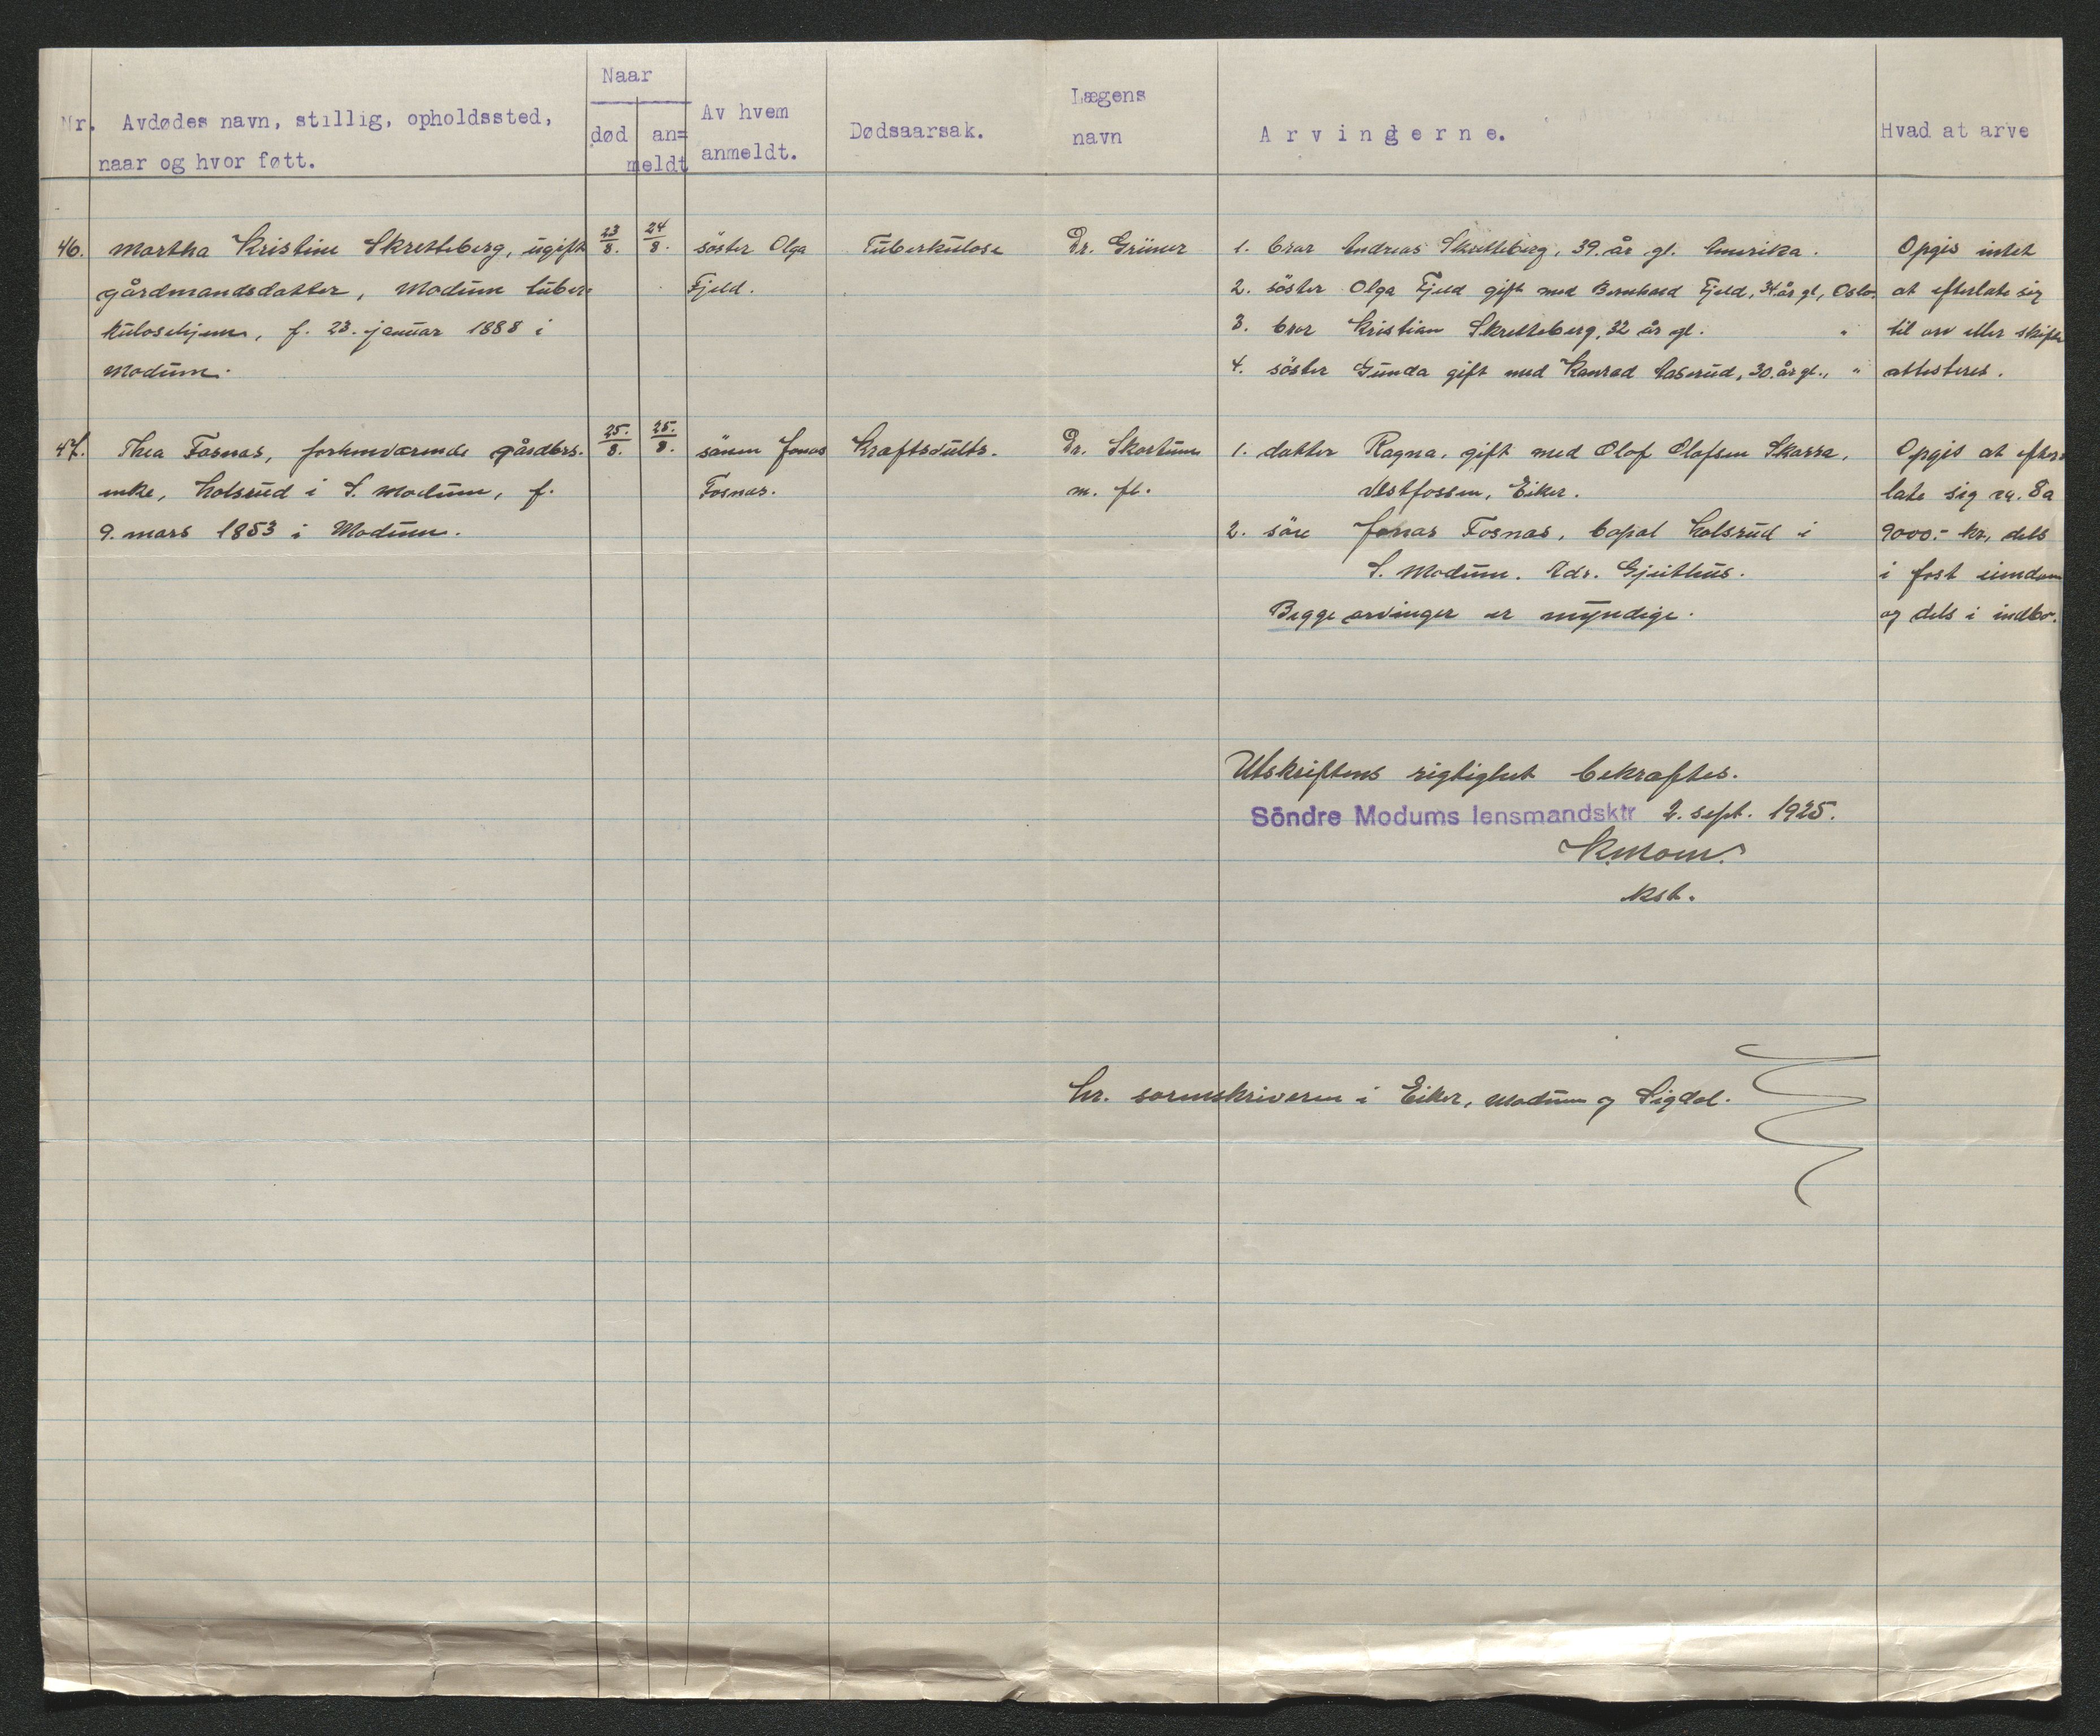 Nr. Avdødes navn, stillig, opholdssted,
naar og hvor føtt.
Naar
død an=
meldt
Av hvem
anmeldt.
Dødsaarsak.
Lægens
navn
Arvingerne.
Hvad at arve
46. Martha Kristine Skretteberg, ugift
gårdmandsdatter, Modum tuber-
kulosehjem, f. 23. januar 1888 i
Modum.
23/8.
24/8.
søster Olga
Fjeld.
Tuberkulose
Dr. Grüner
1. bror Andreas Skretteberg, 39. år gl. Amerika.
2. søster Olga Fjeld gift med Bernhard Fjeld, 34 år gl, Oslo.
3. bror Kristian Skretteberg, 32 år gl. "
4. søster Gunda gift med Konrad Aaserud, 30. år gl., "
Opgis intet
at efterlate sig
til arv eller skifte
attesteres.
47. Thea Fosnas, forhenværende gårdbrs.
enke, Kolsrud i S. Modum, f.
9. mars 1853 i Modum.
25./8.
25./8.
sønen Jonas
Fosnas.
Kraftsvults.
Dr. Skortum
m. fl.
1. datter Ragna, gift med Olof Olafsen Skarra,
Vestfossen, Eiker.
2. søn Jonas Fosnas, bopæl Kolsrud i
S. Modum. Adr. Gjeithus.
Begge arvinger er myndige.
Opgis at efter-
late sig ca. 8 a
9000.- kr., dels
i fast eiendom
og dels i indbo.
Utskriftens rigtighet bekræftes.
Söndre Modums lensmandsktr 2. sept. 1925.
K. Moen.
kst.
Hr. sorenskriveren i Eiker, Modum og Sigdal.